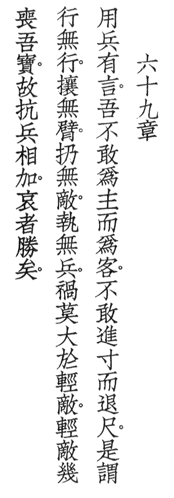 六十九章
用兵有言。吾不敢爲主而爲客。不敢進寸而退尺。是謂
行無行。攘無臂。扔無敵。執無兵。禍莫大於輕敵。輕敵幾
喪吾寶。故抗兵相加。哀者勝矣。